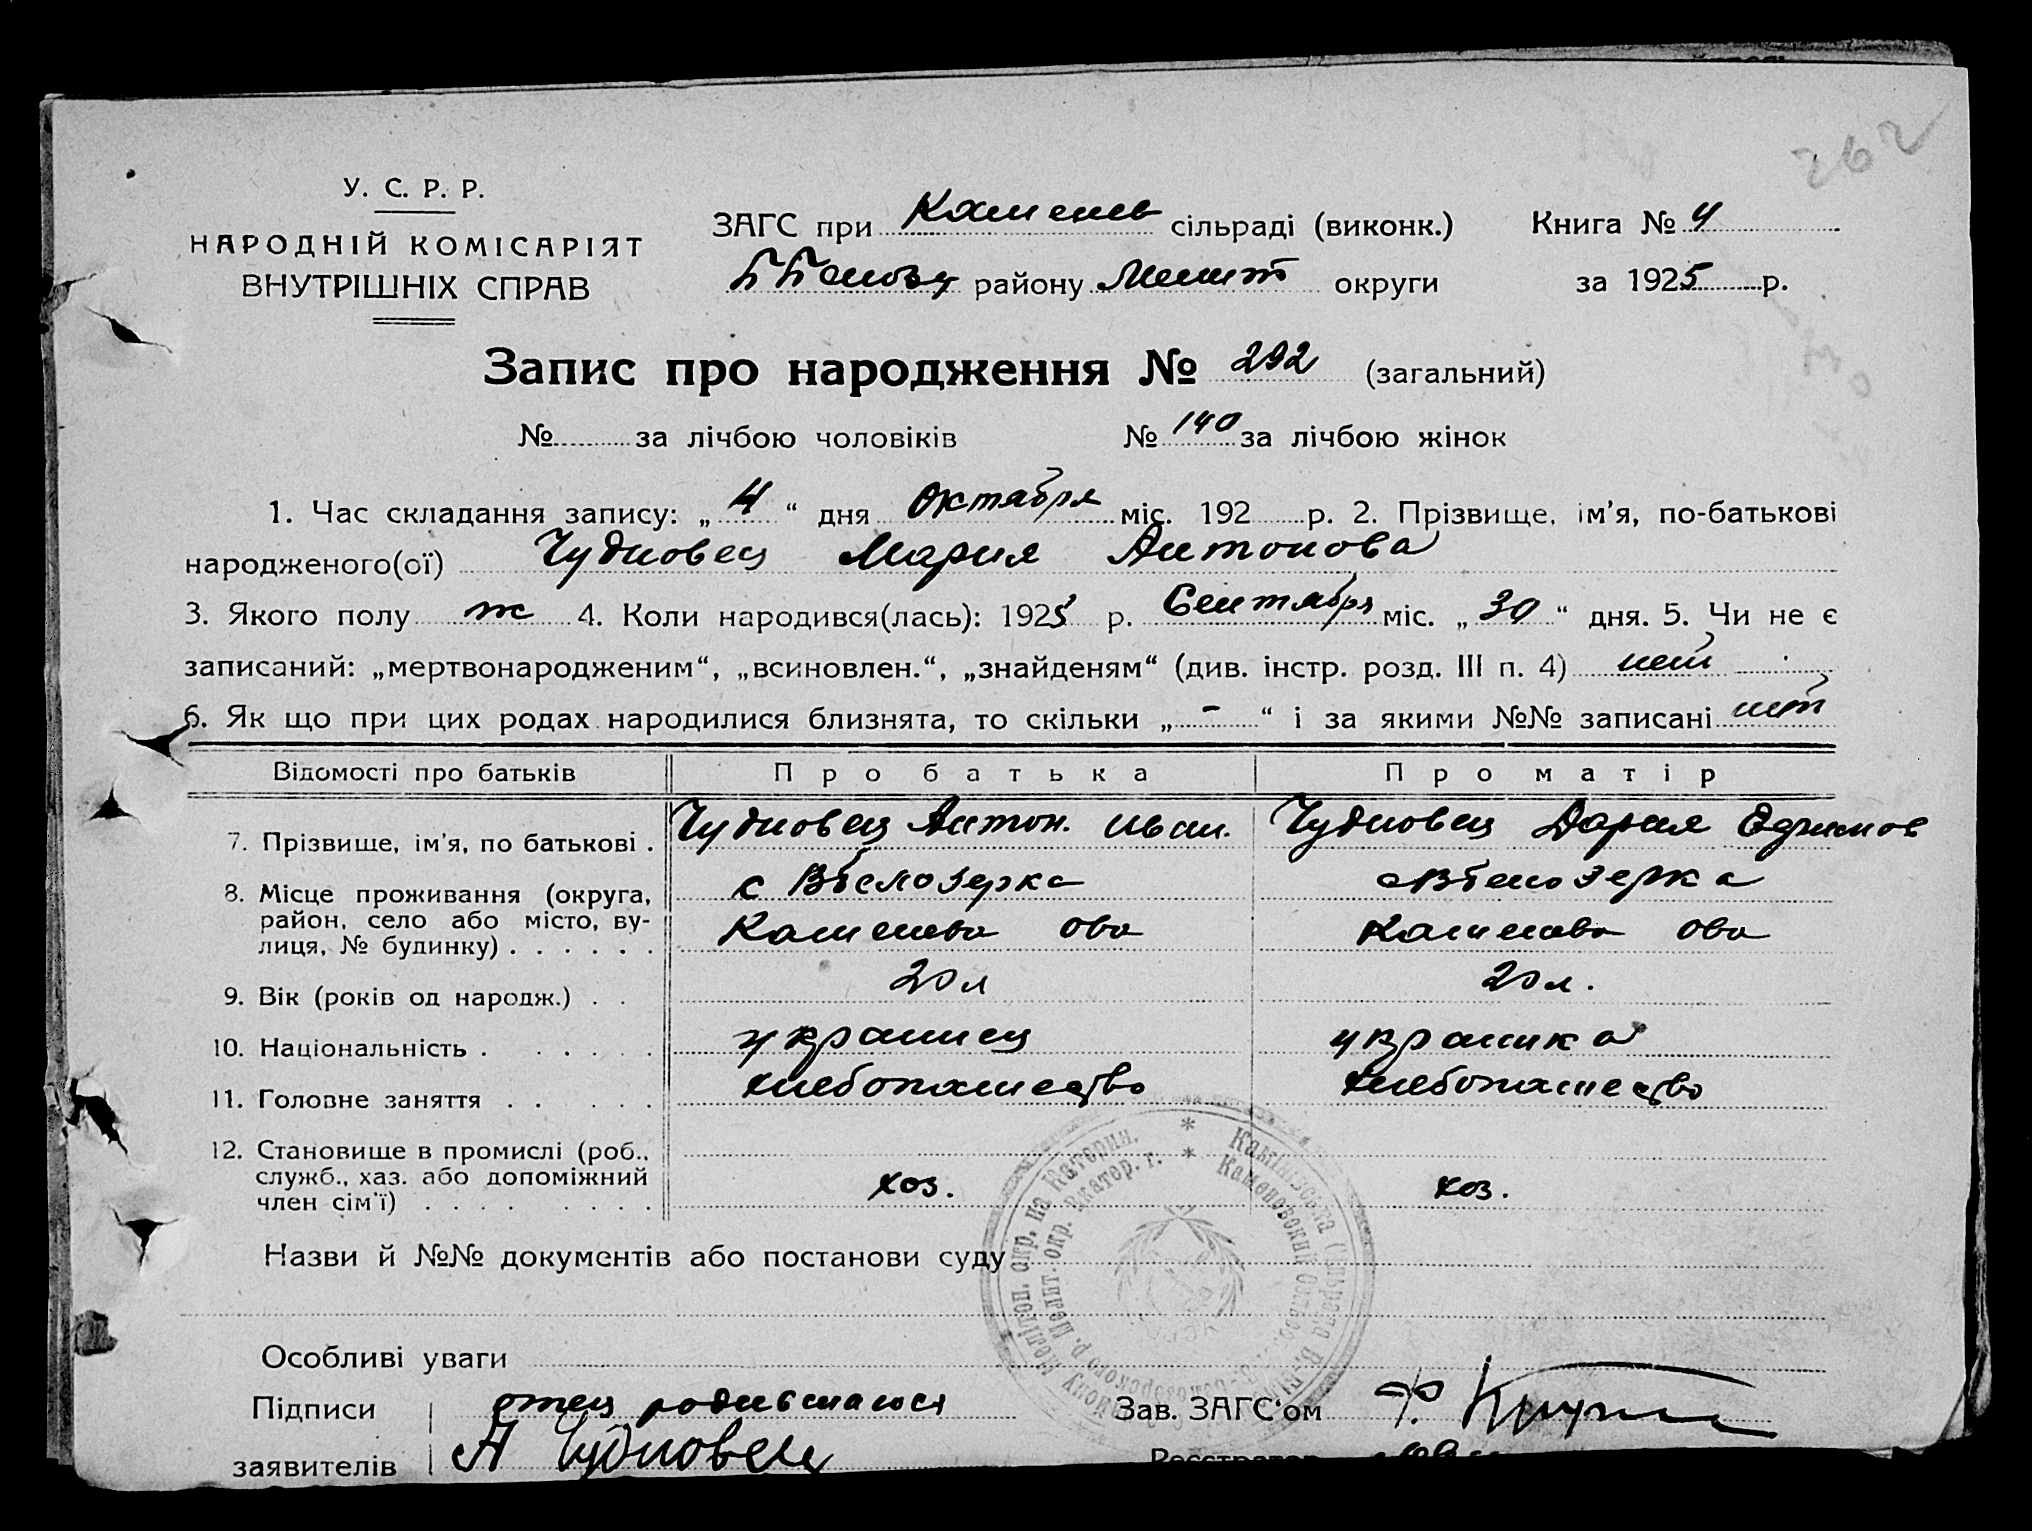 262
У. С. Р. Р.
НАРОДНІЙ КОМІСАРІЯТ
ВНУТРІШНІХ СПРАВ
ЗАГС при Каменев сільраді (виконк.) Книга № 4
району Мелит округи за 1925 р.
Запис про народження № 292 (загальний)
№ за лічбою чоловіків № 140 за лічбою жінок
1. Час складання запису: „4“ дня Октября міс. 192 р. 2. Прізвище, ім'я, по-батькові
народженого(ої) Чудновец Мария Антонова
3. Якого полу ж 4. Коли народився(лась): 1925 р. Сентября міс. „30“ дня. 5. Чи не є
записаний: „мертвонародженим“, „всиновлен.“, „знайденям“ (див. інстр. розд. III п. 4) нет
6. Як що при цих родах народилися близнята, то скільки „-“ і за якими №№ записані нет
Відомості про батьків Про батька Про матір
7. Прізвище, ім'я, по батькові . Чудновец Антон. Иван. Чудновец Дария Ефимов
8. Місце проживання (округа, район, село або місто, вулиця, № будинку) . . . . . . с ВБелозерка ВБелозерка
Каменева Каменева
9. Вік (років од народж.) . . 20 л 20 л.
10. Національність . . . . . . украинец украинка
11. Головне заняття . . . . . хлебопашество хлебопашество
12. Становище в промислі (роб., служб., хаз. або допоміжний член сім'ї) . . . . . . . . хоз. хоз.
Назви й №№ документів або постанови суду
Особливі уваги
Підписи отец родившаюся Зав. ЗАГС'ом
заявителів А Чудновец Реєстратор
Камінська Сільрада
Мелітоп. окр. на Катерин.
Мелит. окр. Екатер. г.